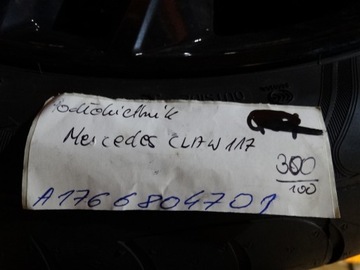 Podłokietnik
Mercedes CLA W117
300
100
A1766804701